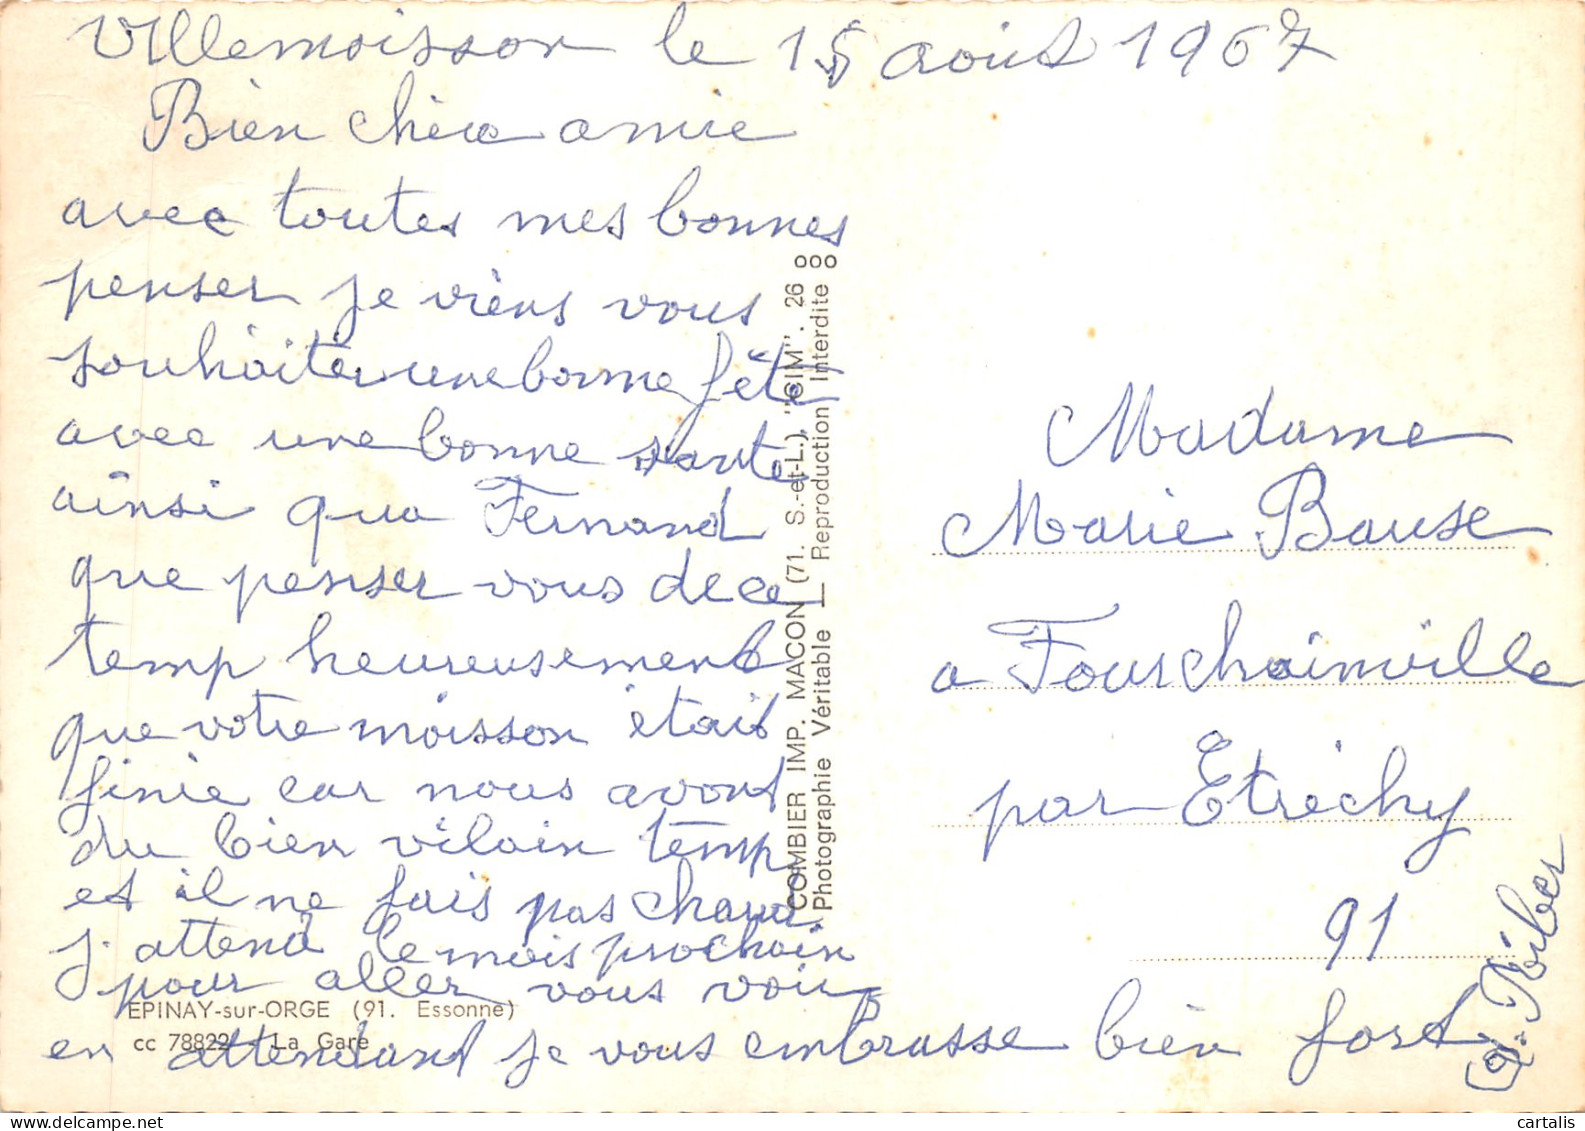 Villemoisson le 15 août 1967
Bien chère amie
avec toutes mes bonnes
penser je viens vous
souhaiter une bonne fête
avec une bonne sante
ainsi qua Fernand
que penser vous de ce
temp heureusement
que votre moisson était
finie car nous avont
du bien vilain temp
et il ne fais pas chaud
j'attend le mois prochain
pour aller vous voir
en attendant je vous embrasse bien fort
Madame
Marie Bause
a Fourchainville
par Etrechy
91
EPINAY-sur-ORGE (91. Essonne)
cc 78822 - La Gare
COMBIER IMP. MACON (71. S.-et-L.). "CIM". 26
Photographie Véritable — Reproduction Interdite
cartalis